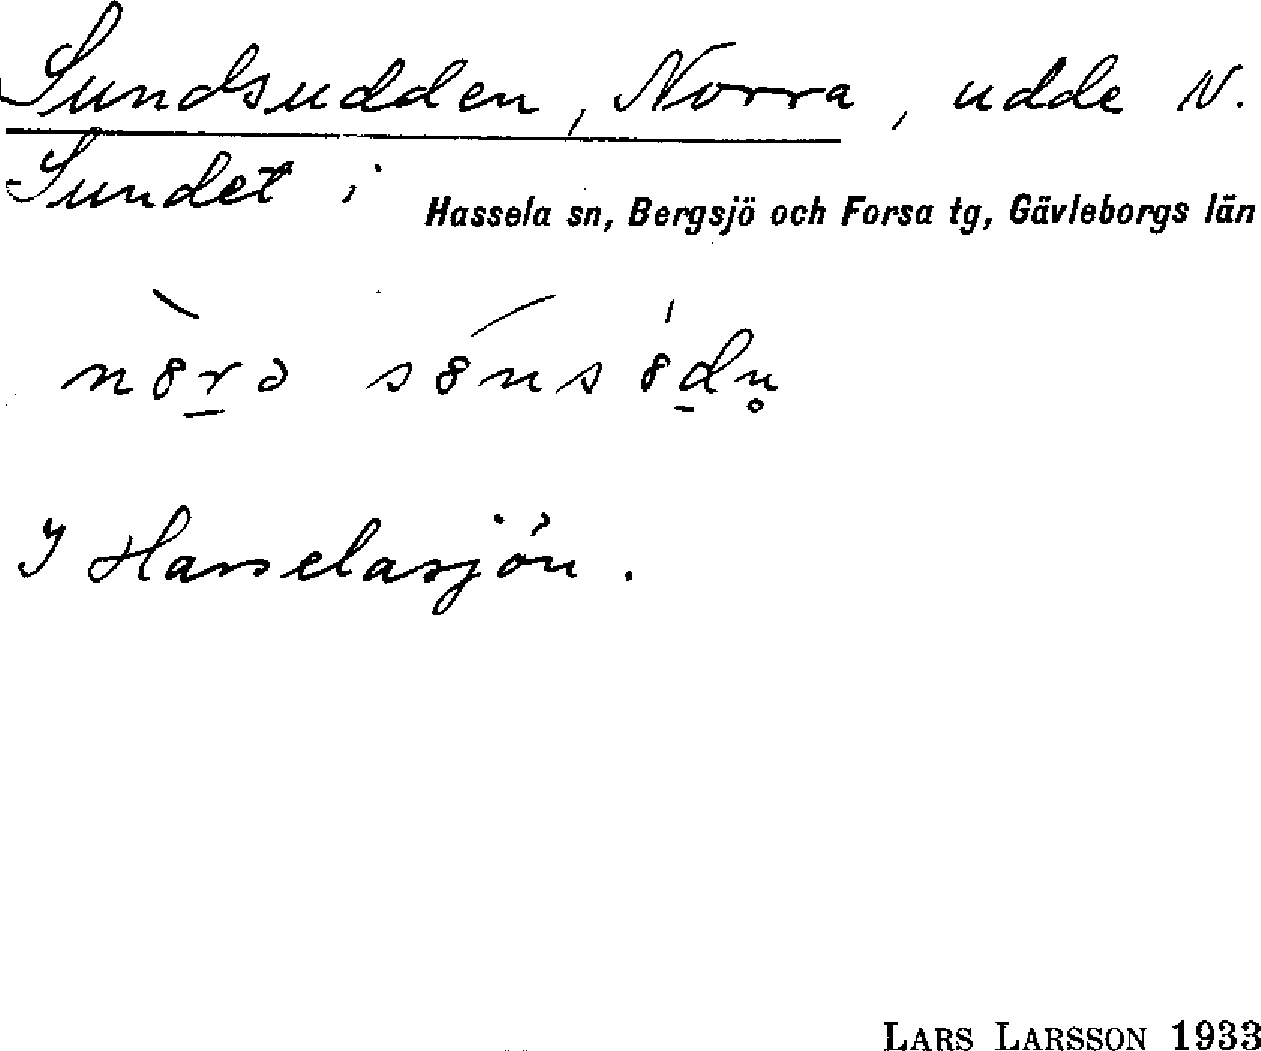 Sundsudden, Norra, udde N.
Sundet i Hassela sn, Bergsjö och Forsa tg, Gävleborgs län
I Hasselasjön.
LARS LARSSON 1933